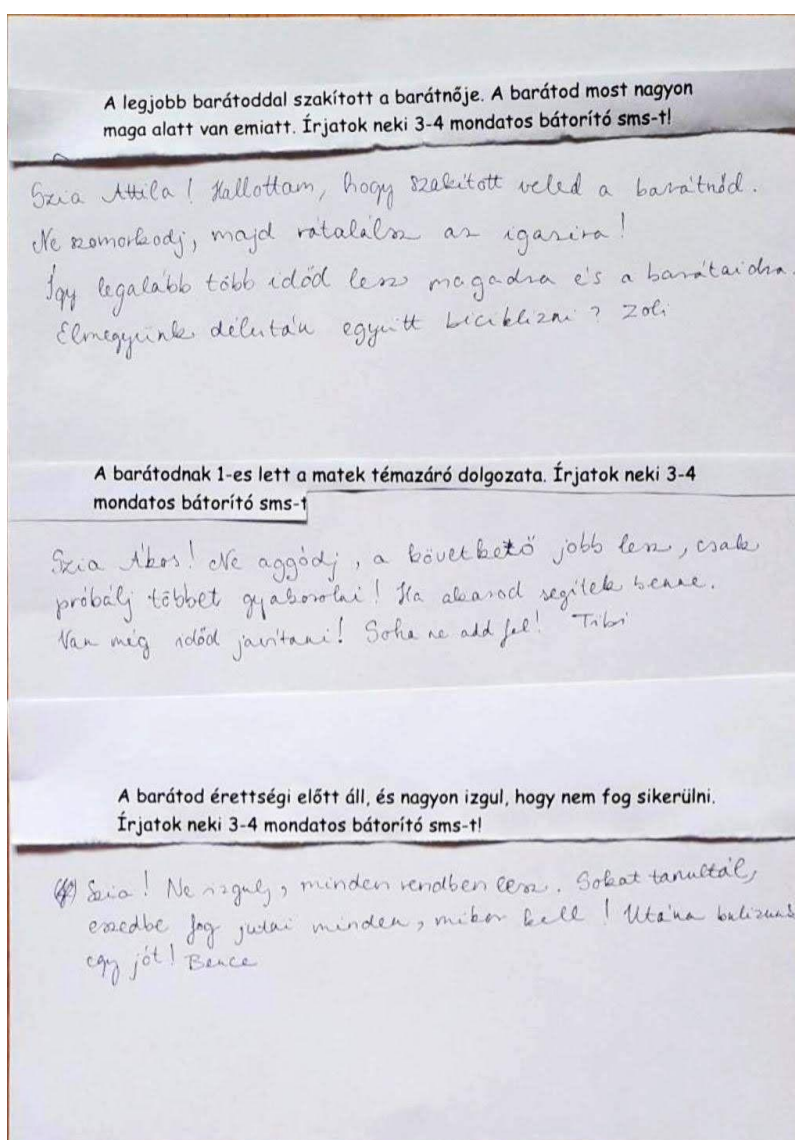 A legjobb barátoddal szakított a barátnője. A barátod most nagyon
maga alatt van emiatt. Írjatok neki 3-4 mondatos bátorító sms-t!
Szia Attila! Hallottam, hogy szakított veled a barátnőd.
Ne szomorkodj, majd rátalálsz az igazira!
Így legalább több időd lesz magadra és a barátaidra.
Elmegyünk délután együtt biciklizni? Zoli
A barátodnak 1-es lett a matek témazáró dolgozata. Írjatok neki 3-4
mondatos bátorító sms-t
Szia Ákos! Ne aggódj, a következő jobb lesz, csak
próbálj többet gyakorolni! Ha akarod segítek benne.
Van még időd javítani! Soha ne add fel! Tibi
A barátod érettségi előtt áll, és nagyon izgul, hogy nem fog sikerülni.
Írjatok neki 3-4 mondatos bátorító sms-t!
Szia! Ne izgulj, minden rendben lesz. Sokat tanultál,
eszedbe fog jutni minden, mikor kell! Utána bulizunk
egy jót! Bence